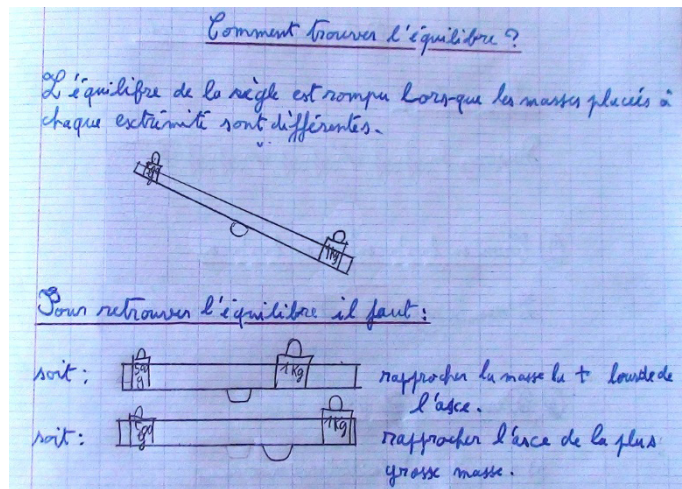 Comment trouver l'équilibre ?
L'équilibre de la règle est rompu lors-que les masses placées à
chaque extrémité sont différentes.
1kg
Pour retrouver l'équilibre il faut :
soit :
500
g
1 kg
rapprocher la masse la + lourde de
l'axe.
soit :
500
1kg
rapprocher l'axe de la plus
grosse masse.